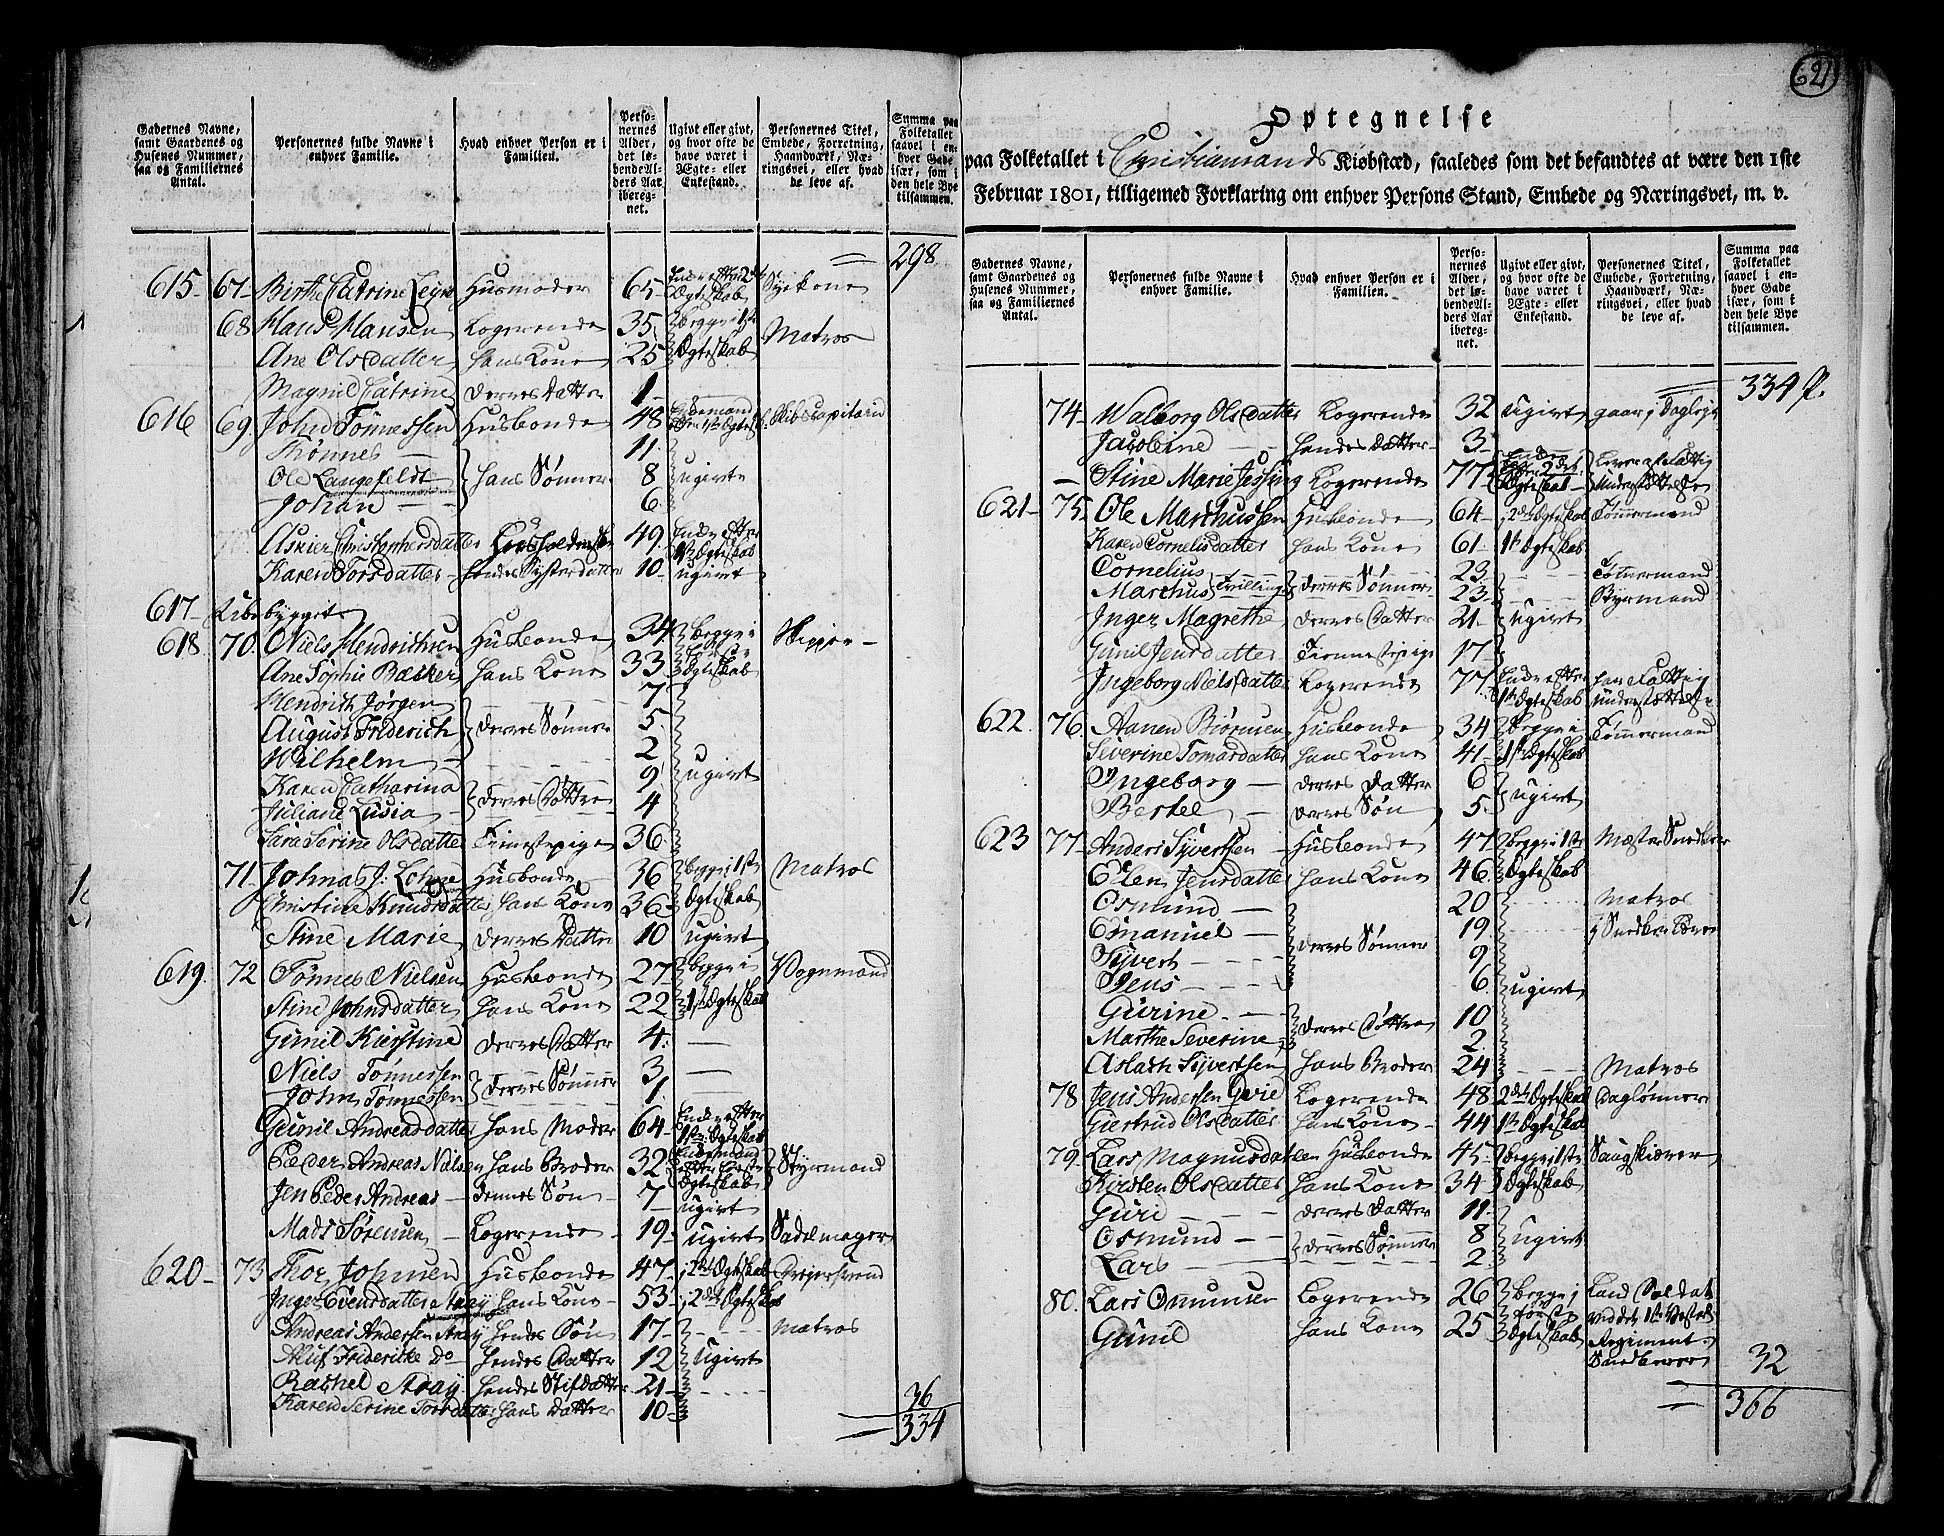 Gadernes Navne, samt Gaardenes og Husenes Nummer, saa og Familiernes Antal.
Personernes fulde Navne i enhver Familie.
Hvad enhver Person er i Familien.
Personernes Alder, det løbende Alders Aar iberegnet.
Ugivt eller givt, og hvor ofte de have været i Ægte- eller Enkestand.
Personernes Titel, Embede, Forretning, Haandværk, Næringsvei, eller hvad de leve af.
Summa paa Folketallet saavel i enhver Gade især, som i den hele Bye tilsammen.
298
615 67 Birthe Catrine Husmoder 65 Enke efter 2det Ægteskab
68 Hans Hansen Logerende 35 begge i 1ste Matros
Ane Olsdatter hans Kone 25 Ægteskab
Magnil Catrine deres Datter 1
616 69 John Tønnessen Husbonde 48 Enkemand Skibscapitain
Tønnes 11
Ole Langefeldt hans Sønner 8 ugivte
Johan 6
Christophersdatter 49 Enke efter 1ste Ægteskab
Karen Torsdatter hendes Søsterdatter 10 ugivt
617 Ubebygget
618 70 Niels Hendrichsen Husbonde 34 begge i
Ane Sophie Backer hans Kone 33 Ægteskab
Hendrich Jørgen 7
August Friderich deres Sønner 5
Wilhelm 2
Karen Catharina 9 ugivt
Juliane Lusia deres Døttre 4
Sara Serine Olsdatter Tienestepige 36
71 Johnas J: Lohne Husbonde 36 begge i 1ste Matros
Christine Knudsdatter hans Kone 36 Ægteskab
Stine Marie deres Datter 10 ugivt
619 72 Tønnes Nielsen Husbonde 27 begge i Vognmand
Stine Johnsdatter hans Kone 22 1ste Ægteskab
Gunil Kirstine deres Datter 4
Niels Tønnessen deres Sønner 3
John Tønnessen 1
Gunil Andreasdatter hans Moder 64 Enke efter 1ste Ægteskab
Peder Andreas Nielsen hans Broder 32 Enkemand efter første Ægteskab Styrmand
Jen Peder Andreas dennes Søn 7 ugivt
Mads Sørensen Logerende 19 ugivt Sadelmager
620 73 Thor Johnsen Husbonde 47 i 2det Ægteskab
Inger Evensdatter Aray hans Kone 53 i 2det Ægteskab
Andreas Andersen hendes Søn 17 Matros
Friderikke Do hendes Datter 12 ugivt
Rachel hendes Stifdatter 21
Karen Serine Torsdatter hans Datter 10
36
334
621
Optegnelse
paa Folketallet i Christiansands Kiøbstæd, saaledes som det befandtes at være den 1ste
Februar 1801, tilligemed Forklaring om enhver Persons Stand, Embede og Næringsvei, m. v.
Gadernes Navne, samt Gaardenes og Husenes Nummer, saa og Familiernes Antal.
Personernes fulde Navne i enhver Familie.
Hvad enhver Person er i Familien.
Personernes Alder, det løbende Alders Aar iberegnet.
Ugivt eller givt, og hvor ofte de have været i Ægte- eller Enkestand.
Personernes Titel, Embede, Forretning, Haandværk, Næringsvei, eller hvad de leve af.
Summa paa Folketallet saavel i enhver Gade især, som i den hele Bye tilsammen.
334
74 Walborg Olsdatter Logerende 32 ugivt gaar i Dagleje
Jacobine hendes Datter 3
Stine Marie Jessing Logerende 77 Enke efter 2det Ægteskab Lever af Fattig Understøttelse
621 75 Ole Marchussen Husbonde 64 i 2det Ægteskab Tømmermand
Karen Cornelisdatter hans Kone 61 1ste Ægteskab
Cornelius 23 Tømmermand
Marchus Tvillinger deres Sønner 23 Styrmand
Inger Magrethe deres Datter 21 ugivt
Gunil Jensdatter Tienestepige 17
Ingeborg Nielsdatter Logerende 77 Enke efter 1ste Ægteskab har Fattig understøttelse
622 76 Aanen Biørnsen Husbonde 34 begge i Tømmermand
Severine Tomasdatter hans Kone 41 1ste Ægteskab
Ingeborg deres Datter 6 ugivt
Bertel deres Søn 5
623 77 Anders Syvertsen Husbonde 47 begge i 1ste Mæster Snedker
Elen Jensdatter hans Kone 46 Ægteskab
Osmund 20 Matros
Emanuel deres Sønner 19 i Snedker Lære
Syvert 9
Jens 6 ugivt
Gurine 10
Marthe Severine deres Døttre 2
Aslach Syvertsen hans Broder 24 Matros
78 Jens Andersen Logerende 48 2det Ægteskab Daglønner
Giertrud Olsdatter hans Kone 44 1ste Ægteskab
79 Lars Magnusdatsen Husbonde 45 begge i 1ste Saugskiærer
Kirsten Olsdatter hans Kone 34 Ægteskab
Guri deres Datter 11
Osmund deres Sønner 8 ugivt
Lars 2
80 Lars Omunsen Logerende 26 begge i Land Soldat
Gunil hans Kone 25 første Ægteskab ved det 1ste Vesterl. Regiment
32
366